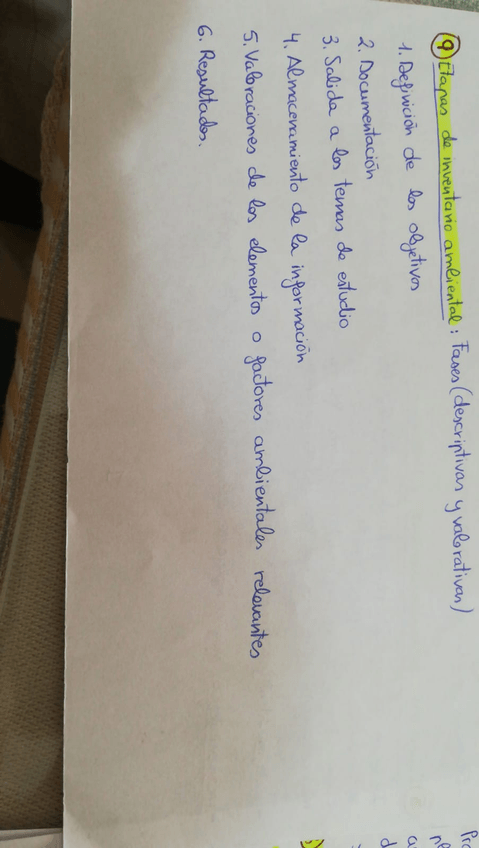 9 Etapas de inventario ambiental: Fases (descriptivas y valorativas)
1. Definición de los objetivos
2. Documentación
3. Salida a los temas de estudio
4. Almacenamiento de la información
5. Valoraciones de los elementos o factores ambientales relevantes
6. Resultados.